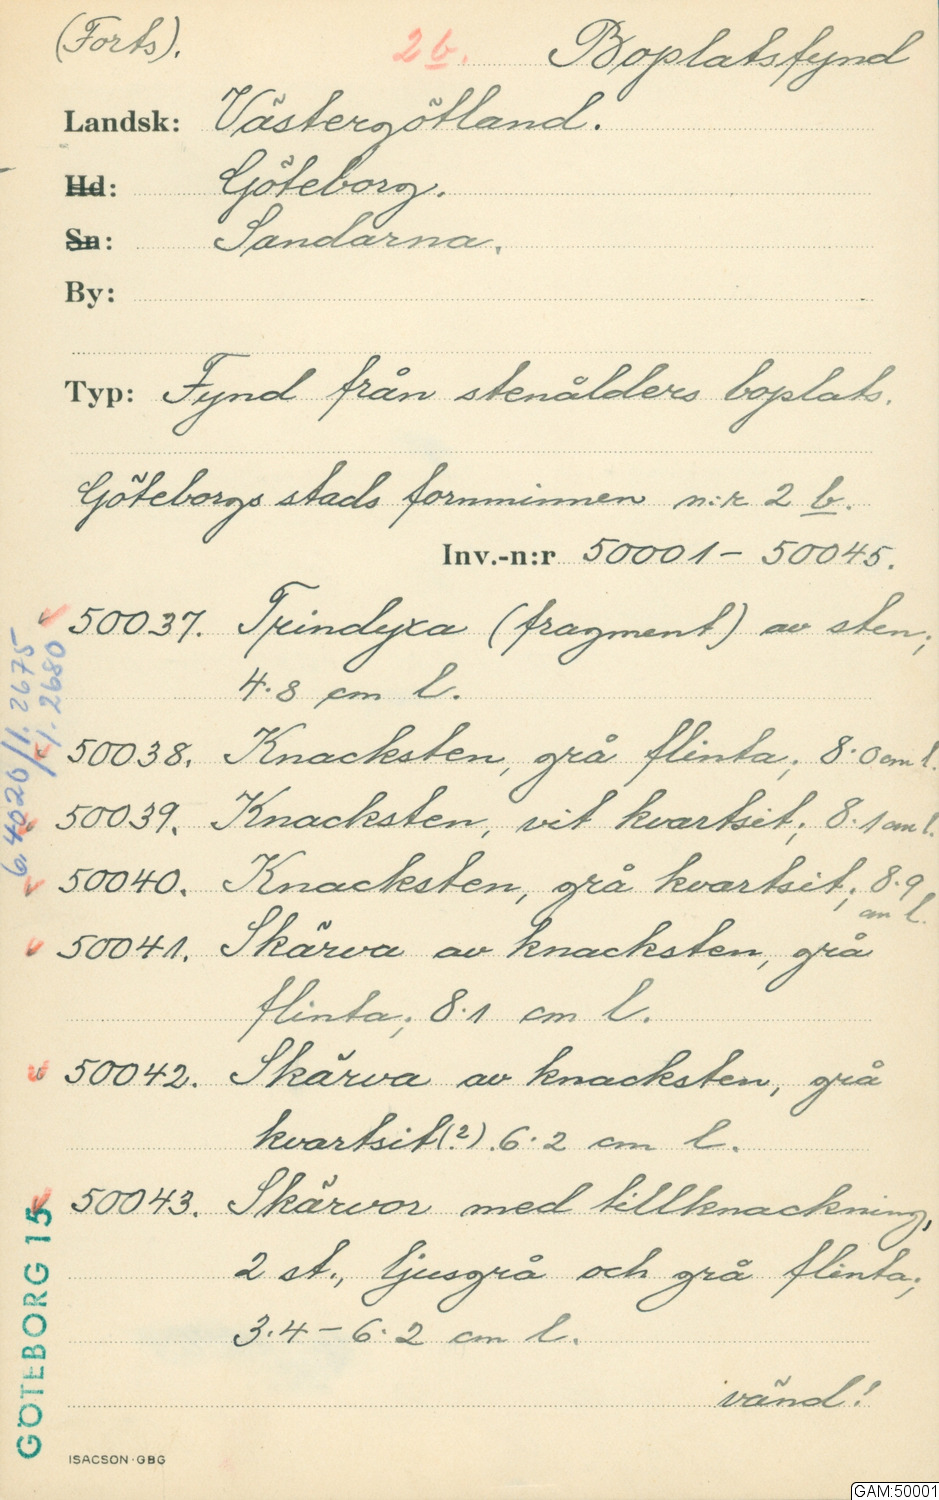 (Forts). 2b. Boplatsfynd
Landsk: Västergötland.
Hd: Göteborg.
Sn: Sandarna.
By:
Typ: Fynd från stenålders boplats.
Göteborgs stads fornminnen n:r 2 b.
Inv.-n:r 50001 – 50045.
50037. Trindyxa (fragment) av sten;
4.8 cm l.
50038. Knacksten, grå flinta; 8.0 cm l.
50039. Knacksten, vit kvartsit; 8.1 cm l.
50040. Knacksten, grå kvartsit; 8.9
cm l.
50041. Skärva av knacksten, grå
flinta; 8.1 cm l.
50042. Skärva av knacksten, grå
kvartsit(?). 6.2 cm l.
50043. Skärvor med tillknackning,
2 st., ljusgrå och grå flinta;
3.4 – 6.2 cm l.
vänd!
GÖTEBORG 15
ISACSON·GBG
GAM:50001